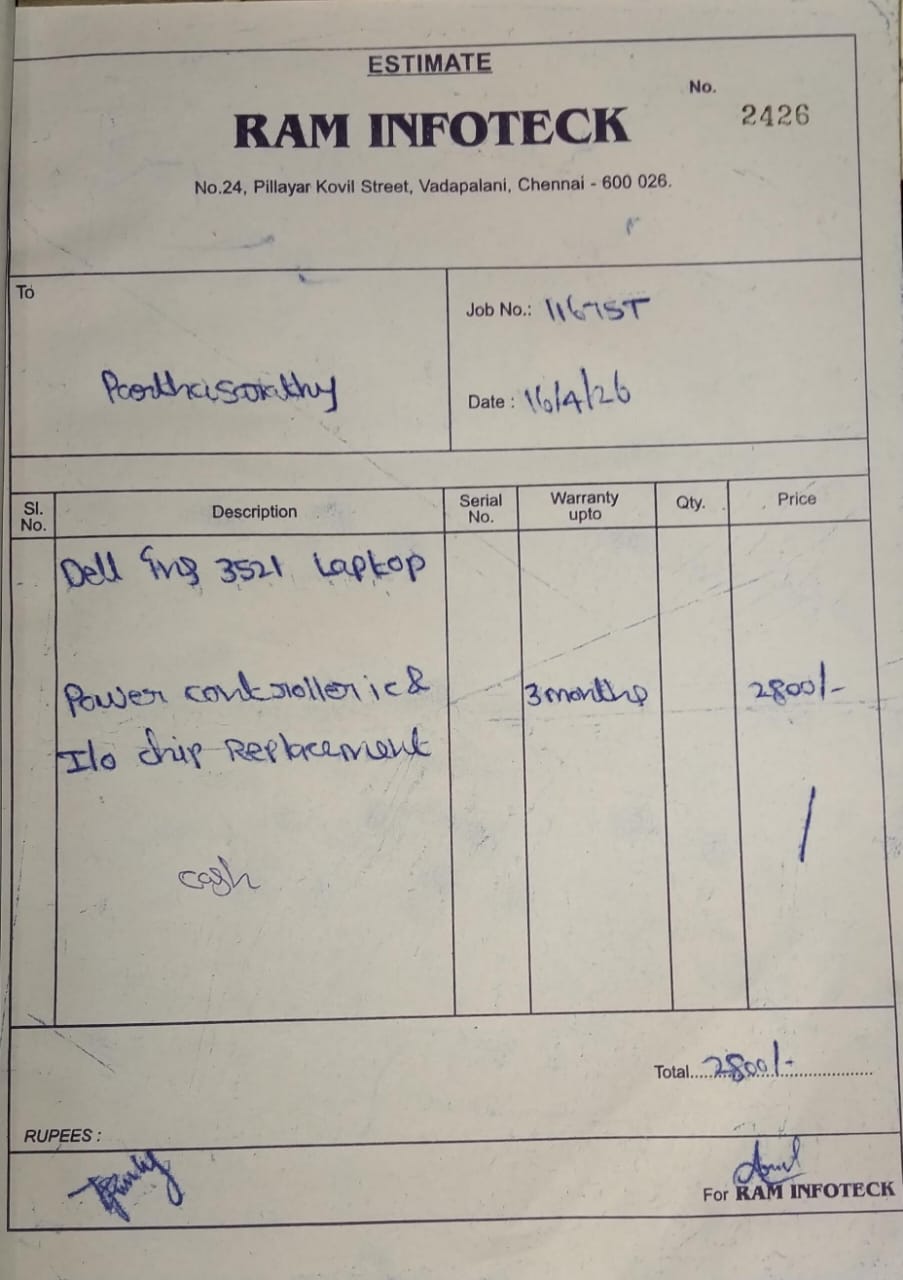 ESTIMATE
No.
2426
RAM INFOTECK
No.24, Pillayar Kovil Street, Vadapalani, Chennai - 600 026.
To
Parthasarathy
Job No.: 11675T
Date : 16/4/26
Sl. No. Description Serial No. Warranty upto Qty. Price
Dell Ins 3521 Laptop
Power controller ic & 3 months 2800/-
I/o chip Replacement
cash
Total 2800/-
RUPEES :
For RAM INFOTECK